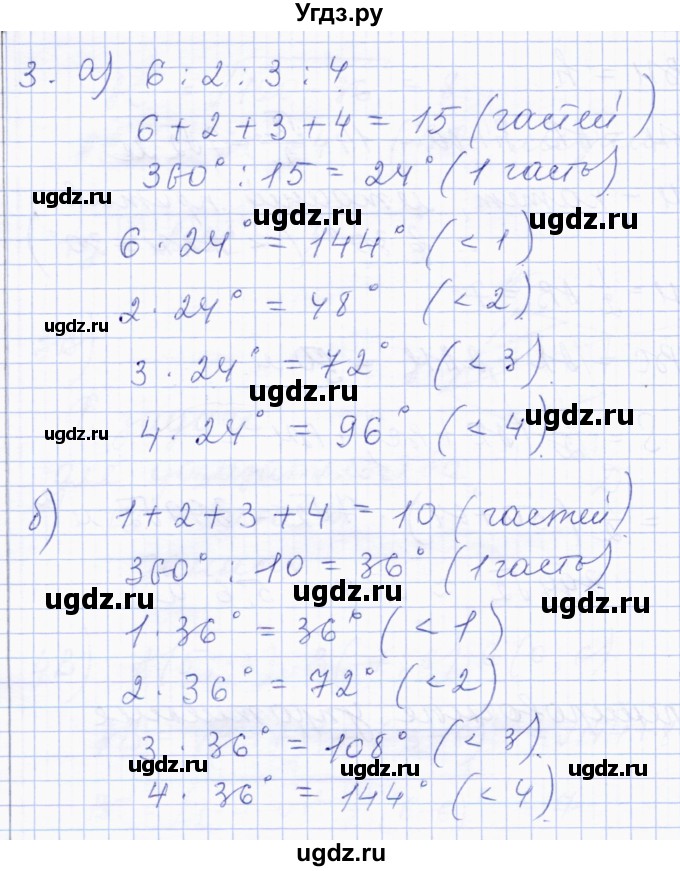 Угдз.ру
3. а) 6 : 2 : 3 : 4
6 + 2 + 3 + 4 = 15 (частей)
360° : 15 = 24° (1 часть)
ugdz.ru ugdz.ru ugdz.ru
6 · 24° = 144° (< 1)
2 · 24° = 48° (< 2)
ugdz.ru
3 · 24° = 72° (< 3)
ugdz.ru
4 · 24° = 96° (< 4)
ugdz.ru ugdz.ru
б) 1 + 2 + 3 + 4 = 10 (частей)
360° : 10 = 36° (1 часть)
ugdz.ru ugdz.ru ugdz.ru
1 · 36° = 36° (< 1)
2 · 36° = 72° (< 2)
3 · 36° = 108° (< 3)
ugdz.ru ugdz.ru ugdz.ru
4 · 36° = 144° (< 4)
ugdz.ru